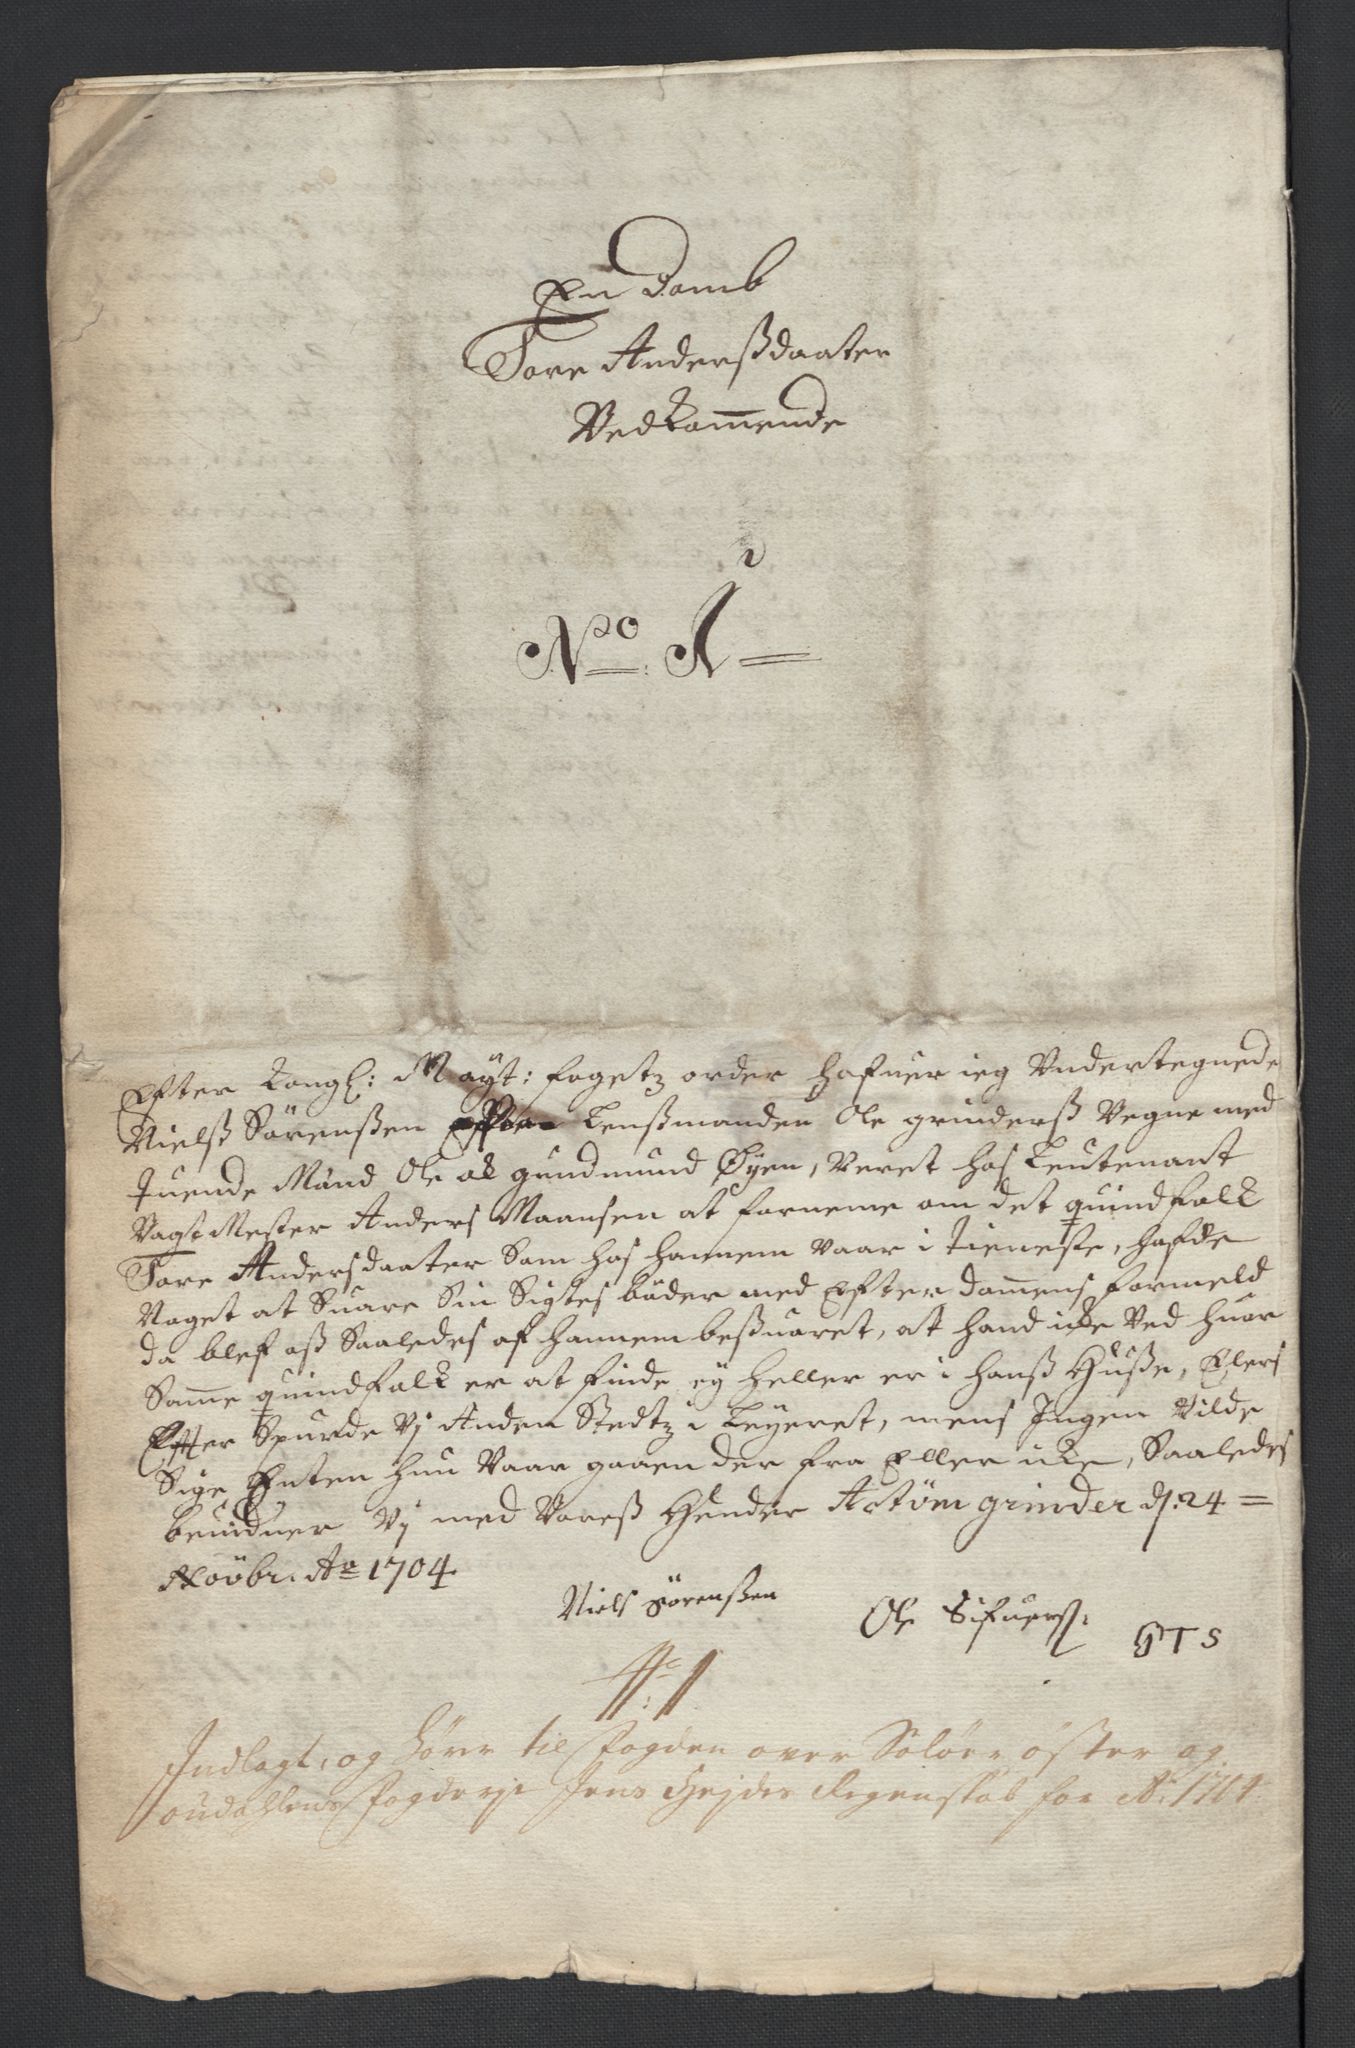 En Domb
Tore Anderßdaater
Vedkom̅ende
No. 1
Efter Kongl: Mayt: fogetz order hafuer ieg Undertegnede
Nielß Sörenßen Lenßmanden Ole grinderß Vegne med
Tuende Mand Ole ok gundmund Øyen, Veret hos Leutenant
Vagt Mester Anders Maansen at forneme om det quindfolk
Tore Andersdaater Som hos hannem Vaar i tieneste, hafde
Noget at Suare Sin Sigtes böder med Efter Dom̅ens formeld
da blef oß Saaledes af hannem beßuaret, at hand icke Ved huor
Sam̅e quindfolk er at finde ey heller er i hanß Huße, Elers
Efter Spurde Vj Anden Stedtz i Leyeret, mens Ingen Vilde
Sige Enten hun Vaar gaaen der fra Eller icke, Saaledes
beuidner Vj med Voreß Hender grinder d: 24 =
Noöbr. Ao 1704
Niels Sörenßen Ole Sifuerß: GTS
No: 1
Indlagt, og hörer til Fogden over Solöer, öster og
oudahlens Fogderje Jens Hejdes Regenskab for Ao: 1704